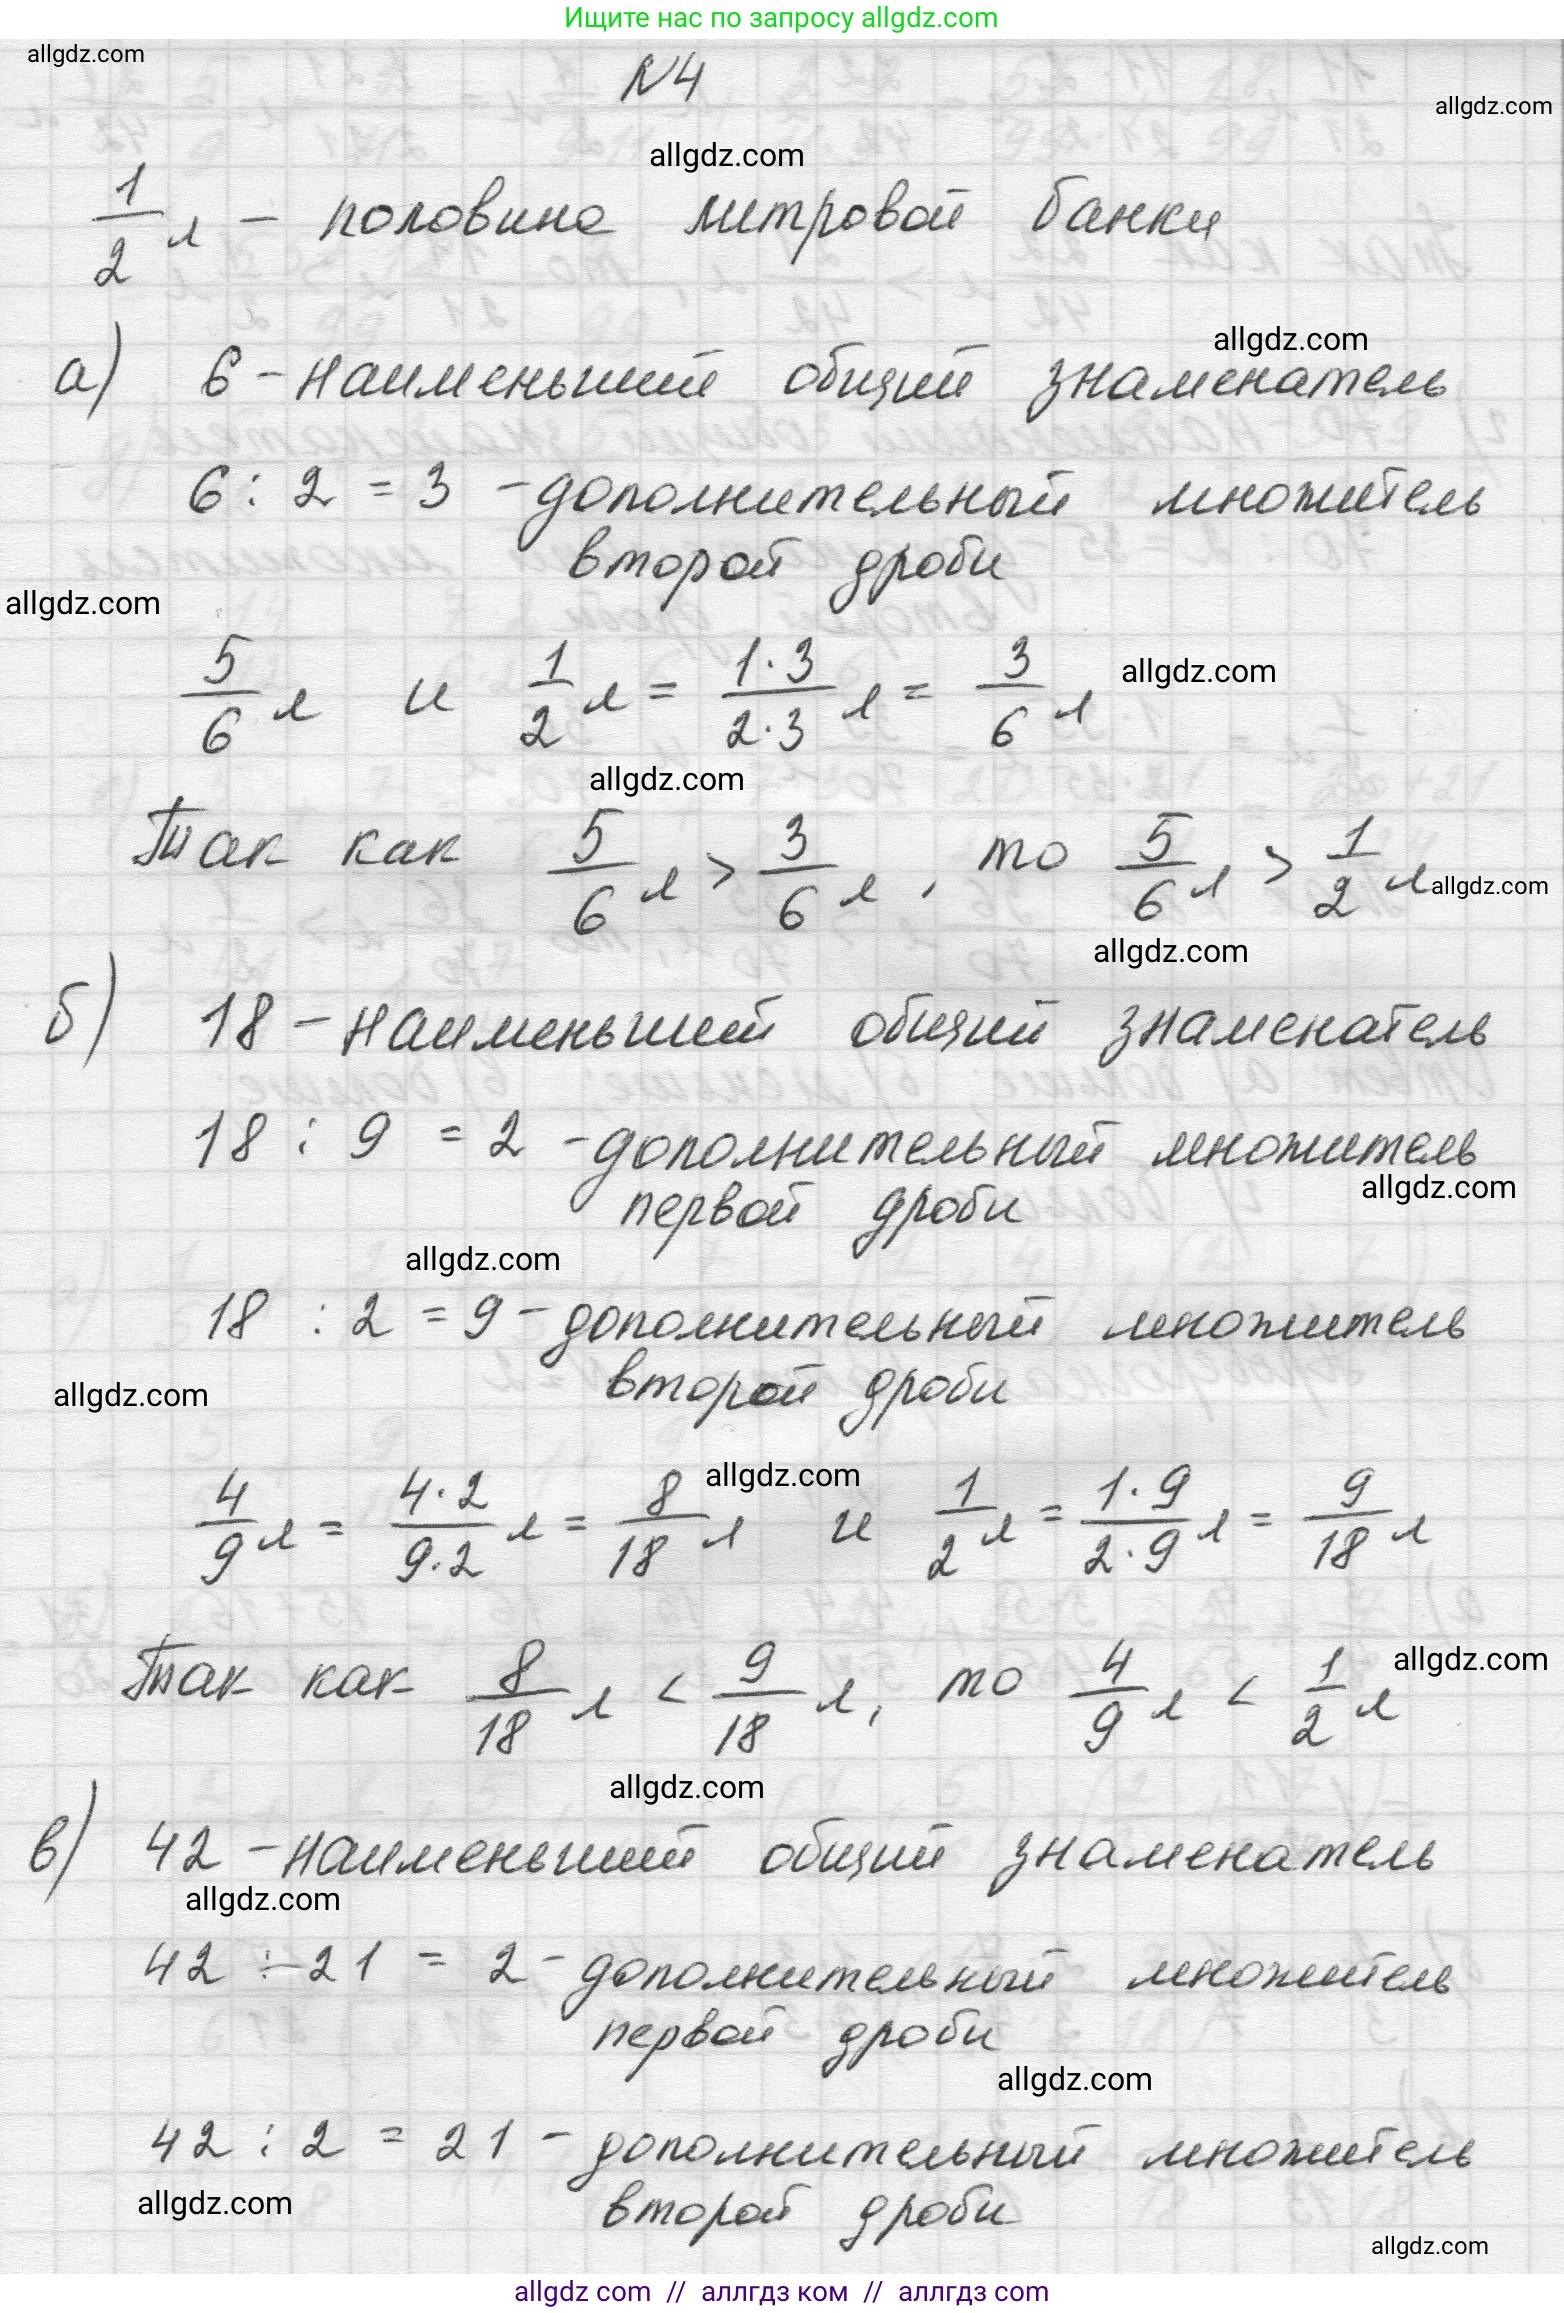 Ищите нас по запросу allgdz.com
allgdz.com
N4
allgdz.com
allgdz.com
1/2 л – половина литровой банки
allgdz.com
а) 6 – наименьший общий знаменатель
6 : 2 = 3 – дополнительный множитель
второй дроби
allgdz.com
5/6 л и 1/2 л = 1·3/2·3 л = 3/6 л
allgdz.com
allgdz.com
Так как 5/6 л > 3/6 л, то 5/6 л > 1/2 л
allgdz.com
allgdz.com
б) 18 – наименьший общий знаменатель
18 : 9 = 2 – дополнительный множитель
первой дроби
allgdz.com
allgdz.com
18 : 2 = 9 – дополнительный множитель
второй дроби
allgdz.com
allgdz.com
4/9 л = 4·2/9·2 л = 8/18 л и 1/2 л = 1·9/2·9 л = 9/18 л
Так как 8/18 л < 9/18 л, то 4/9 л < 1/2 л
allgdz.com
allgdz.com
в) 42 – наименьший общий знаменатель
allgdz.com
42 : 21 = 2 – дополнительный множитель
первой дроби
allgdz.com
42 : 2 = 21 – дополнительный множитель
второй дроби
allgdz.com
allgdz.com
allgdz com // аллгдз ком // аллгдз com